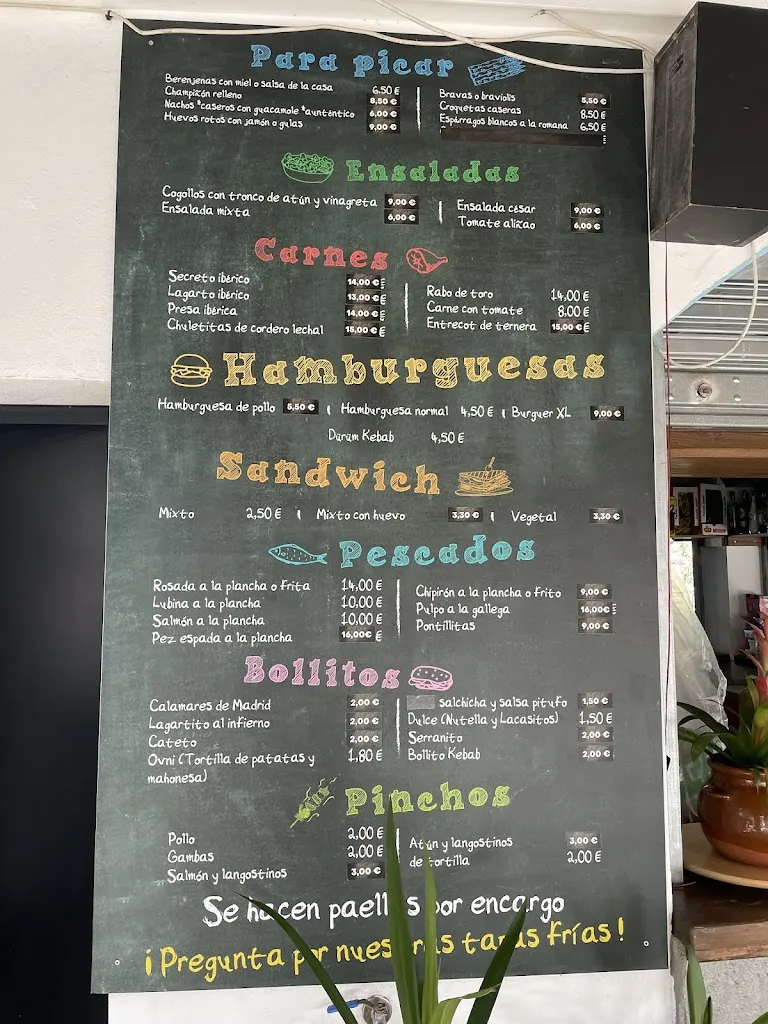 Para picar
Berenjenas con miel o salsa de la casa 6.50 €
Champiñón relleno 8,50 €
Nachos *caseros con guacamole *aunténtico 6,00 €
Huevos rotos con jamón o gulas 9,00 €
Bravas o braviolis 5,50 €
Croquetas caseras 8.50 €
Espárragos blancos a la romana 6,50 €
Ensaladas
Cogollos con tronco de atún y vinagreta 9,00 €
Ensalada mixta 6,00 €
Ensalada césar 9,00 €
Tomate aliñao 6,00 €
Carnes
Secreto ibérico 14,00 €
Lagarto ibérico 13,00 €
Presa ibérica 14,00 €
Chuletitas de cordero lechal 15,00 €
Rabo de toro 14,00 €
Carne con tomate 8.00 €
Entrecot de ternera 15,00 €
Hamburguesas
Hamburguesa de pollo 5,50 € Hamburguesa normal 4,50 € Burguer XL 9,00 €
Durum Kebab 4,50 €
Sandwich
Mixto 2,50 € Mixto con huevo 3,30 € Vegetal 3,30 €
Pescados
Rosada a la plancha o frita 14,00 €
Lubina a la plancha 10.00 €
Salmón a la plancha 10.00 €
Pez espada a la plancha 16,00€
Chipirón a la plancha o frito 9,00 €
Pulpo a la gallega 16,00€
Pontillitas 9,00 €
Bollitos
Calamares de Madrid 2,00 €
Lagartito al infierno 2,00 €
Cateto 2,00 €
Ovni (Tortilla de patatas y 1,80 €
mahonesa)
salchicha y salsa pitufo 1,50 €
Dulce (Nutella y Lacasitos) 1,50 €
Serranito 2,00 €
Bollito Kebab 2,00 €
Pinchos
Pollo 2,00 €
Gambas 2,00 €
Salmón y langostinos 3,00 €
Atún y langostinos 3,00 €
de tortilla 2,00 €
Se hacen paellas por encargo
¡Pregunta por nuestras tapas frías!